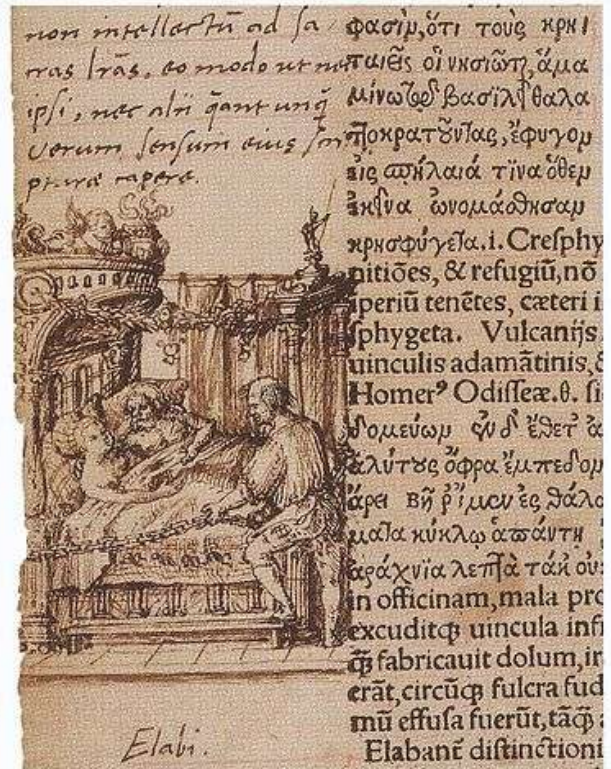 non intellectū ad sa
cras lrās, eo modo ut
ipsi, nec alii q̄ant unq̄
verum sensum eius
pturæ capere.
φασὶμ, ὅτι τοὺς κρη
οἱ νησιῶτ, ἅμα
βασιλ θαλα
ἔφυγομ
εἰς σπήλαιά τινα ὅθεμ
ὠνομάσθησαμ
κρησφύγετα .i. Cresphy
nitiões, & refugiū, nõ
iperiũ tenẽtes, cæteri i
sphygeta. Vulcanijs
uinculis adamãtinis, &
Homerꝰ Odisseæ. θ. si
ἀλύτους ὄφρα ἔμπεδομ
βῆ ῥ' ἴμεν ἐς θάλα
κύκλῳ ἁπάντη
ἀράχνια λεπτὰ
in officinam, mala pro
excuditqꝫ uincula infi
qꝫ fabricauit dolum, ir
erãt, circũcqꝫ fulcra fud
mũ effusa fuerũt, tãq̃
Elabant̃ distinctioni
Elabi.